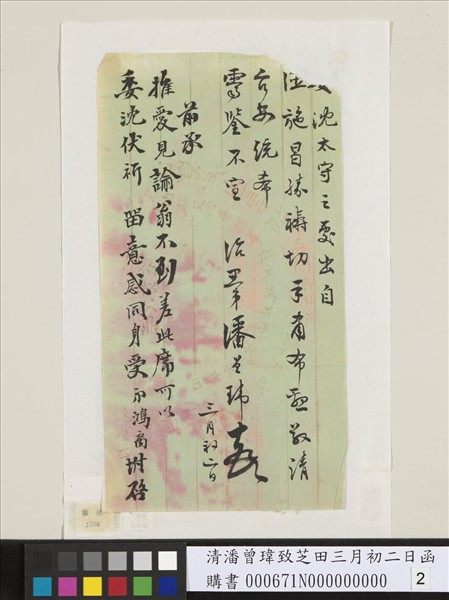 沈太守之處出自
施曷勝禱切手肅布懇敬請
台安統希
霽鑒不宣 治愚弟潘曾瑋頓首
三月初二日
前承
推愛見諭翁不到差此席可以
委沈伏祈 留意感同身受 鴻坿啓
清潘曾瑋致芝田三月初二日函
購書 000671N000000000
2